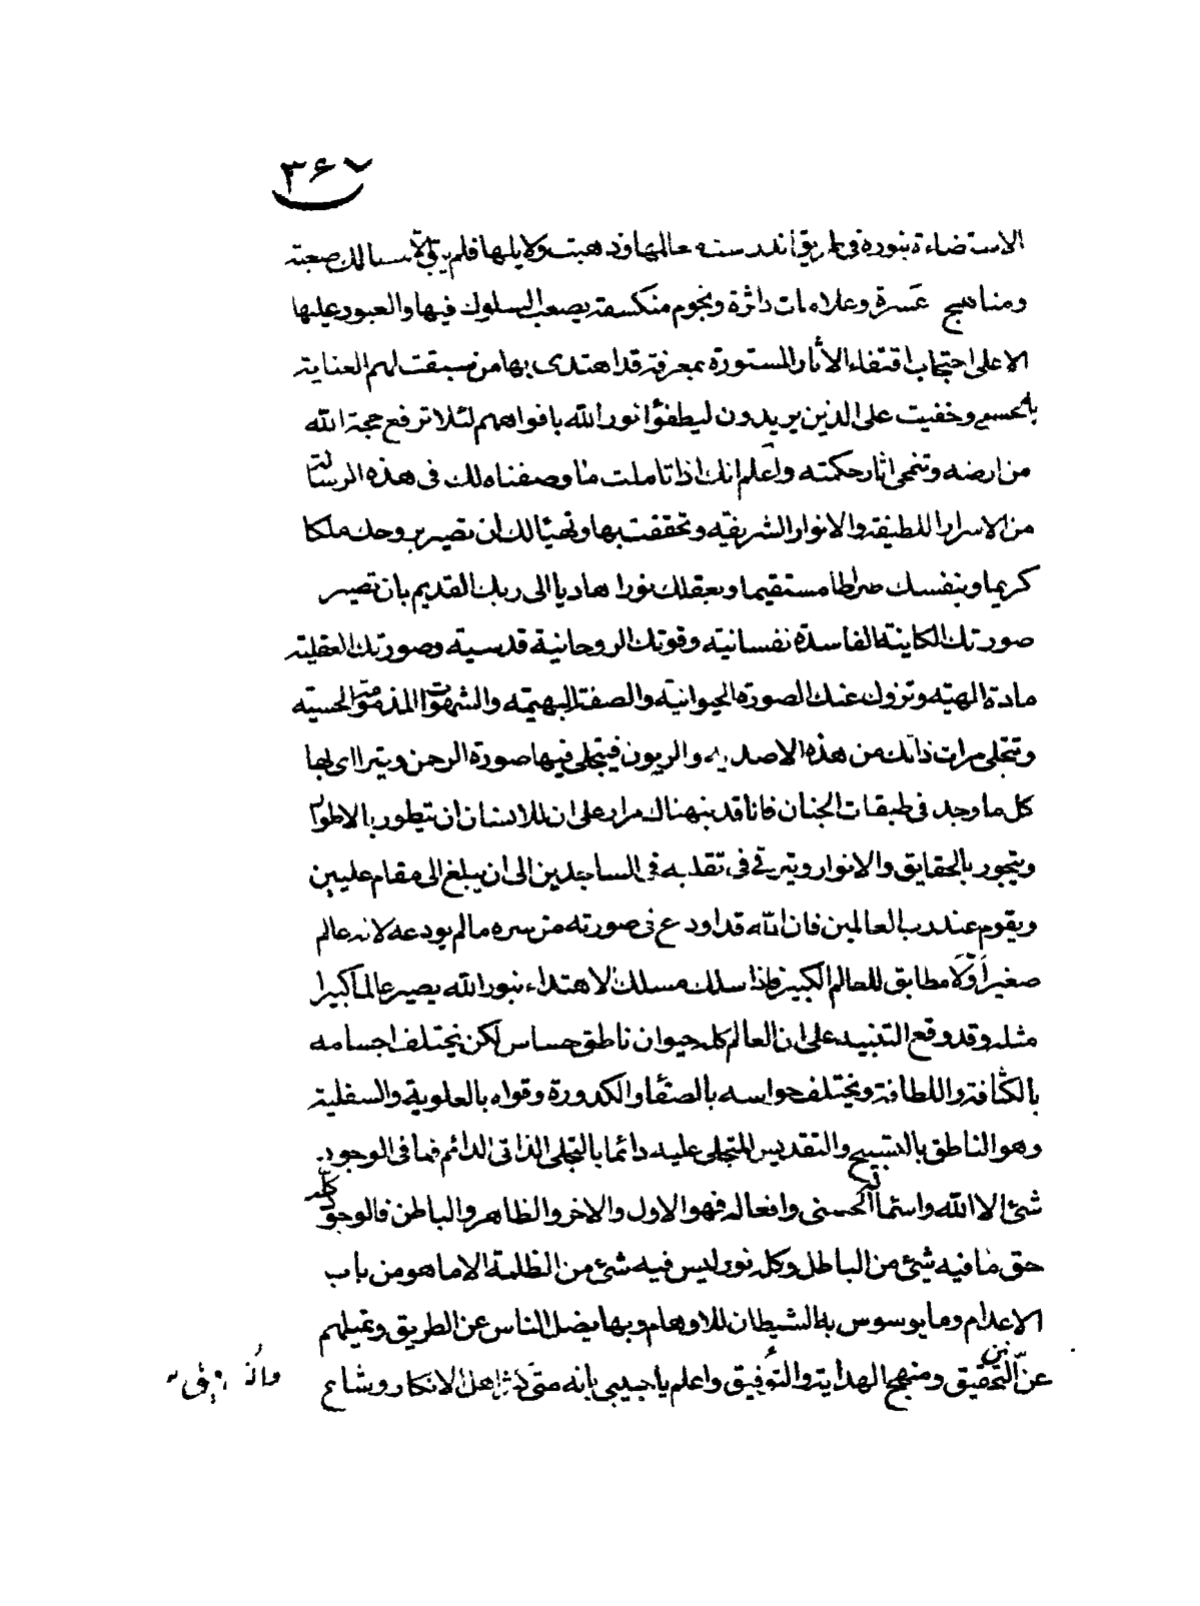 ۳۶۷
الاستضاءة بنوره فى طريق اندرست معالمها وذهبت دلايلها فلم يبق الا مسالك صعبة
ومناهج عسرة وعلامات داثرة ونجوم منكسفة يصعب السلوك فيها والعبور عليها
الا على احتجاب اقتفاء الاثار المستورة بمعرفة قد اهتدى بها من سبقت لهم العناية
بالحسنى وخفيت على الذين يريدون ليطفؤا نور الله بافواههم لئلا ترفع حجة الله
من ارضه وتنمحى اثار حكمته واعلم انك اذا تاملت ما وصفناه لك فى هذه الرسالة
من الاسرار اللطيفة والانوار الشريفة وتحققت بها وتهيا لك ان تصير بروحك ملكا
كريما وبنفسك صراطا مستقيما وبعقلك نورا هاديا الى ربك القديم بان تصير
صورتك الكاينة الفاسدة نفسانية وقوتك الروحانية قدسية وصورتك العقلية
مادة الهية وتزول عنك الصورة الحيوانية والصفة البهيمة والشهوات المذمومة الحسية
وتتجلى مرات ذاتك من هذه الاصدية والريون فيتجلى فيها صورة الرحمن ويتراای لها
كل ما وجد فى طبقات الجنان فانا قد نبهناك مرارا على ان للانسان ان يتطور بالاطوار
ويتجوهر بالحقايق والانوار ويترقى فى تقلبه فى الساجدين الى ان يبلغ الى مقام عليين
ويقوم عند رب العالمين فان الله قد اودع فى صورته من سره ما لم يودعه لانه عالم
صغير اولا مطابق للعالم الكبير فاذا سلك مسلك الاهتداء بنور الله يصير عالما كبيرا
مثله وقد وقع التنبيه على ان العالم كله حيوان ناطق حساس لكن يختلف اجسامه
بالكثافة واللطافة ويختلف حواسه بالصفاء والكدورة وقواه بالعلوية والسفلية
وهو الناطق بالتسبيح والتقديس المتجلى عليه دائما بالتجلى الذاتى الدائم فما فى الوجود
شئ الا الله واسمائه الحسنى وافعاله فهو الاول والاخر والظاهر والباطن فالوجود كله
حق ما فيه شئ من الباطل وكله نور ليس فيه شئ من الظلمة الا ما هو من باب
الاعدام وما يوسوس به الشيطان للاوهام وبها يضل الناس عن الطريق ويميلهم
عن التحقيق ومنهج الهداية والتوفيق واعلم يا حبيبى بانه متى كثر اهل الانكار وشاع